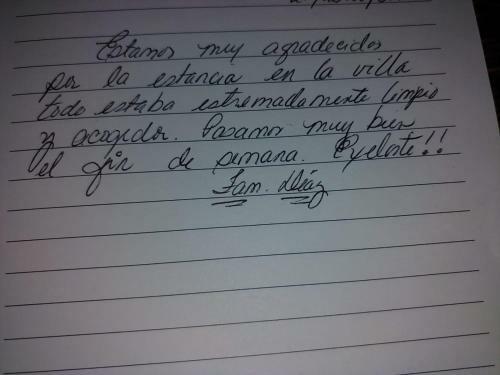 Estamos muy agradecidos
por la estancia en la villa
todo estaba estremadamente limpio
y acogedor. Pasamos muy bien
el fin de semana. Exelente!!
Fam. Díaz